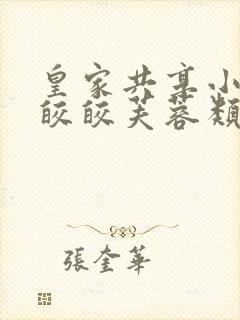 皇家共享小
皎皎芙蓉類
張奎華